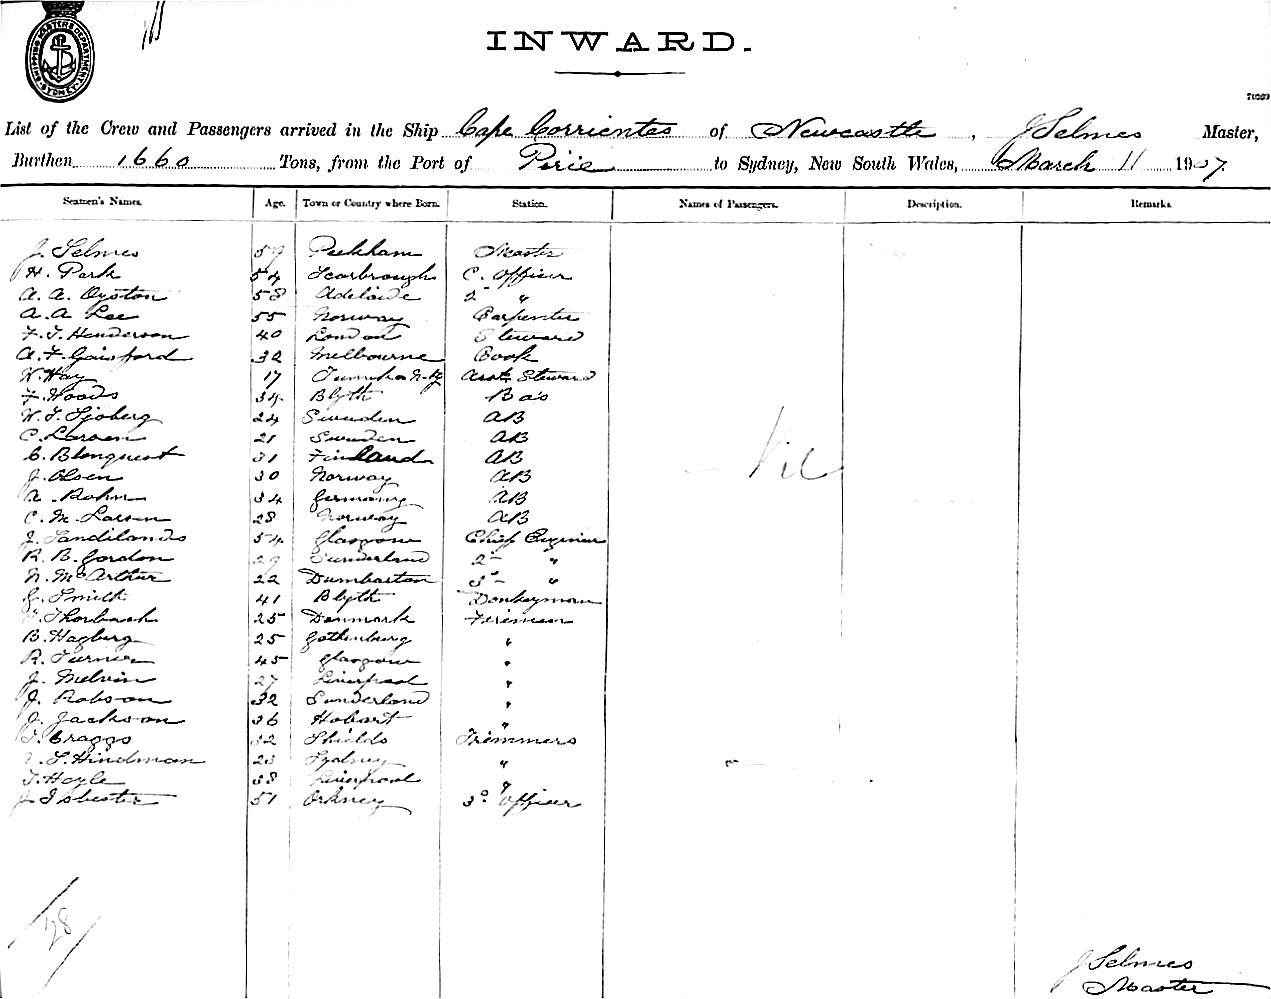 SHIPPING MASTERS DEPARTMENT SYDNEY
INWARD.
70269
List of the Crew and Passengers arrived in the Ship Cape Corrientes of Newcastle, J Selmes Master,
Burthen 1660 Tons, from the Port of Pirie to Sydney, New South Wales, March 11 1907.
Seamen's Names. Age. Town or Country where Born. Station. Names of Passengers. Description. Remarks.
J. Selmes 59 Peckham Master
H. Park 54 Scarbrough C. Officer
A. A. Oyston 58 Adelaide 2 "
A. A Lee 55 Norway Carpenter
F. J. Henderson 40 London Steward
A. F. Gainsford 32 Melbourne Cook
W. Hay 17 Asst Steward
F. Woods 34 Blyth Bos
W. J. Sjoberg 24 Sweden AB
C. Larsen 21 Sweden AB
C. Blonquest 31 Finland AB
J. Olsen 30 Norway AB
A. Rohn 34 Germany AB
C. M. Larsen 28 Norway AB
Nil
J. Sandilands 54 Glasgow Chief Engineer
R. B. Gordon 29 Sunderland 2 "
N. McArthur 22 Dumbarton 3 "
G. Smith 41 Blyth Donkeyman
Thorbach 25 Denmark Firemen
B. Hagberg 25 Gothenburg "
R. Turner 45 Glasgow "
J. Melvin 27 Liverpool "
J. Robson 32 Sunderland "
J. Jackson 36 Hobart "
T. Craggs 32 Shields Trimmers
S. Hindman 23 Sydney "
T. Hoyle 38 Liverpool "
J. Isbester 51 Orkney 3° Officer
28
J Selmes
Master